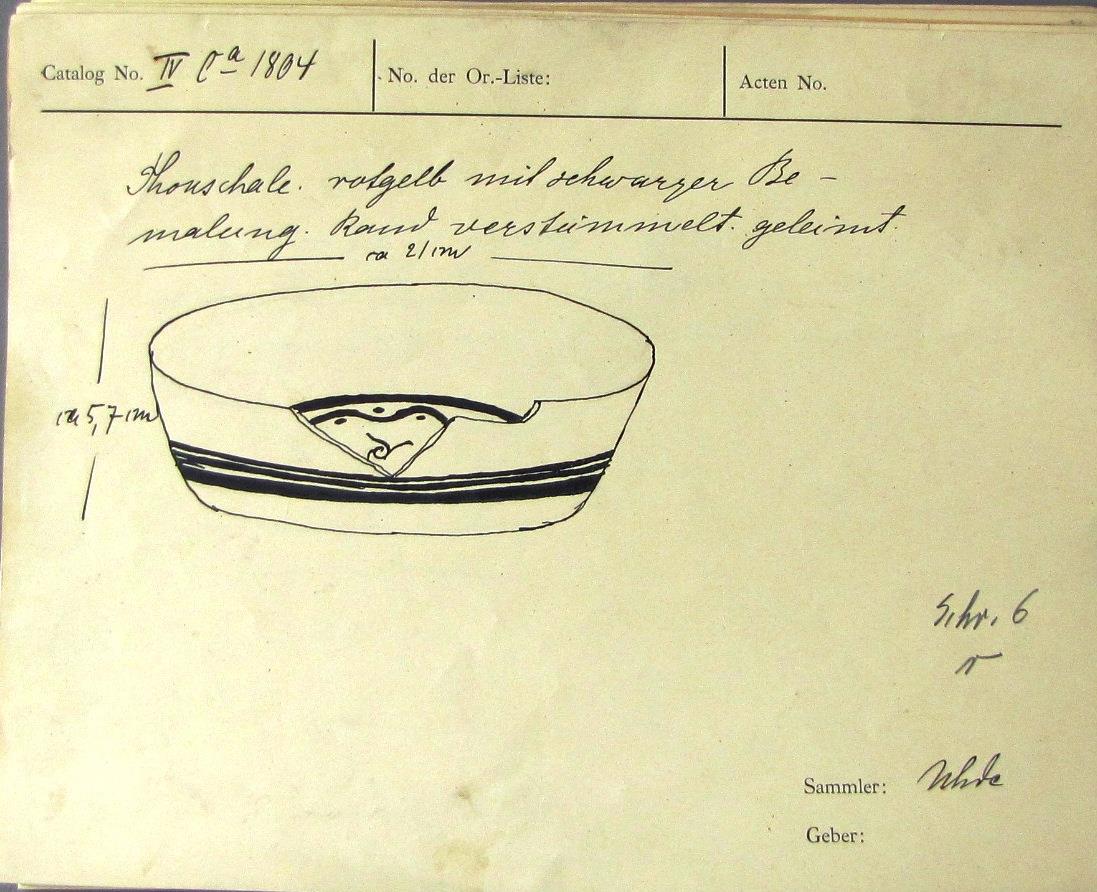 Catalog No. IV Ca 1804
No. der Or.-Liste:
Acten No.
Thonschale. rotgelb mit schwarzer Be-
malung. Rand verstümmelt. geleimt.
ca 21 cm
ca 5,7 cm
Schr. 6
r
Sammler: Uhde
Geber: